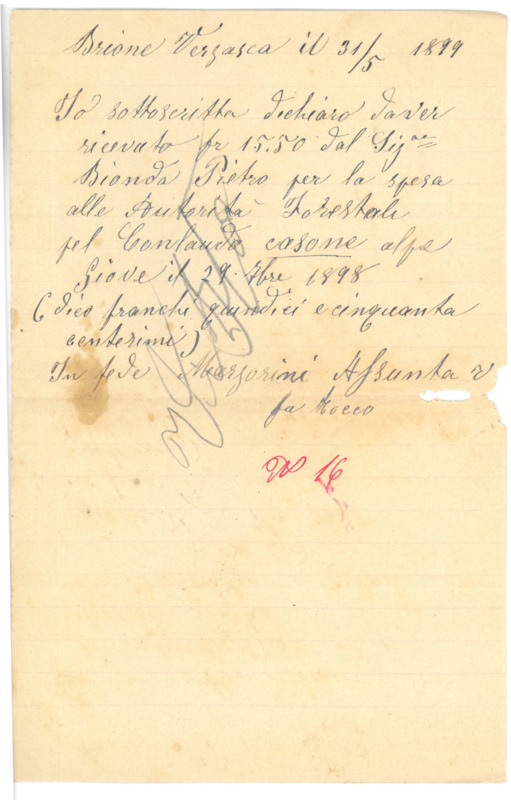 Brione Verzasca il 31/5 1899
Io sottoscritta dichiaro d'aver
ricevuto fr 15.50 dal Sig.re
Bionda Pietro per la spesa
alle Autorità Forestali
pel Conlaudo casone alpe
Giove il 29. 7bre 1898
(dico franchi quindici e cinquanta
centesimi)
In fede Marzorini Assunta
fu Rocco
No 16